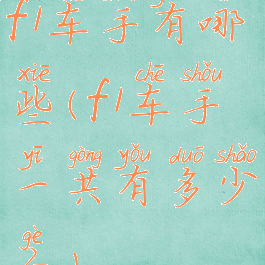 f1车手有哪
xiē chē shǒu
些(f1车手
yī gòng yǒu duō shǎo
一共有多少
gè
个)